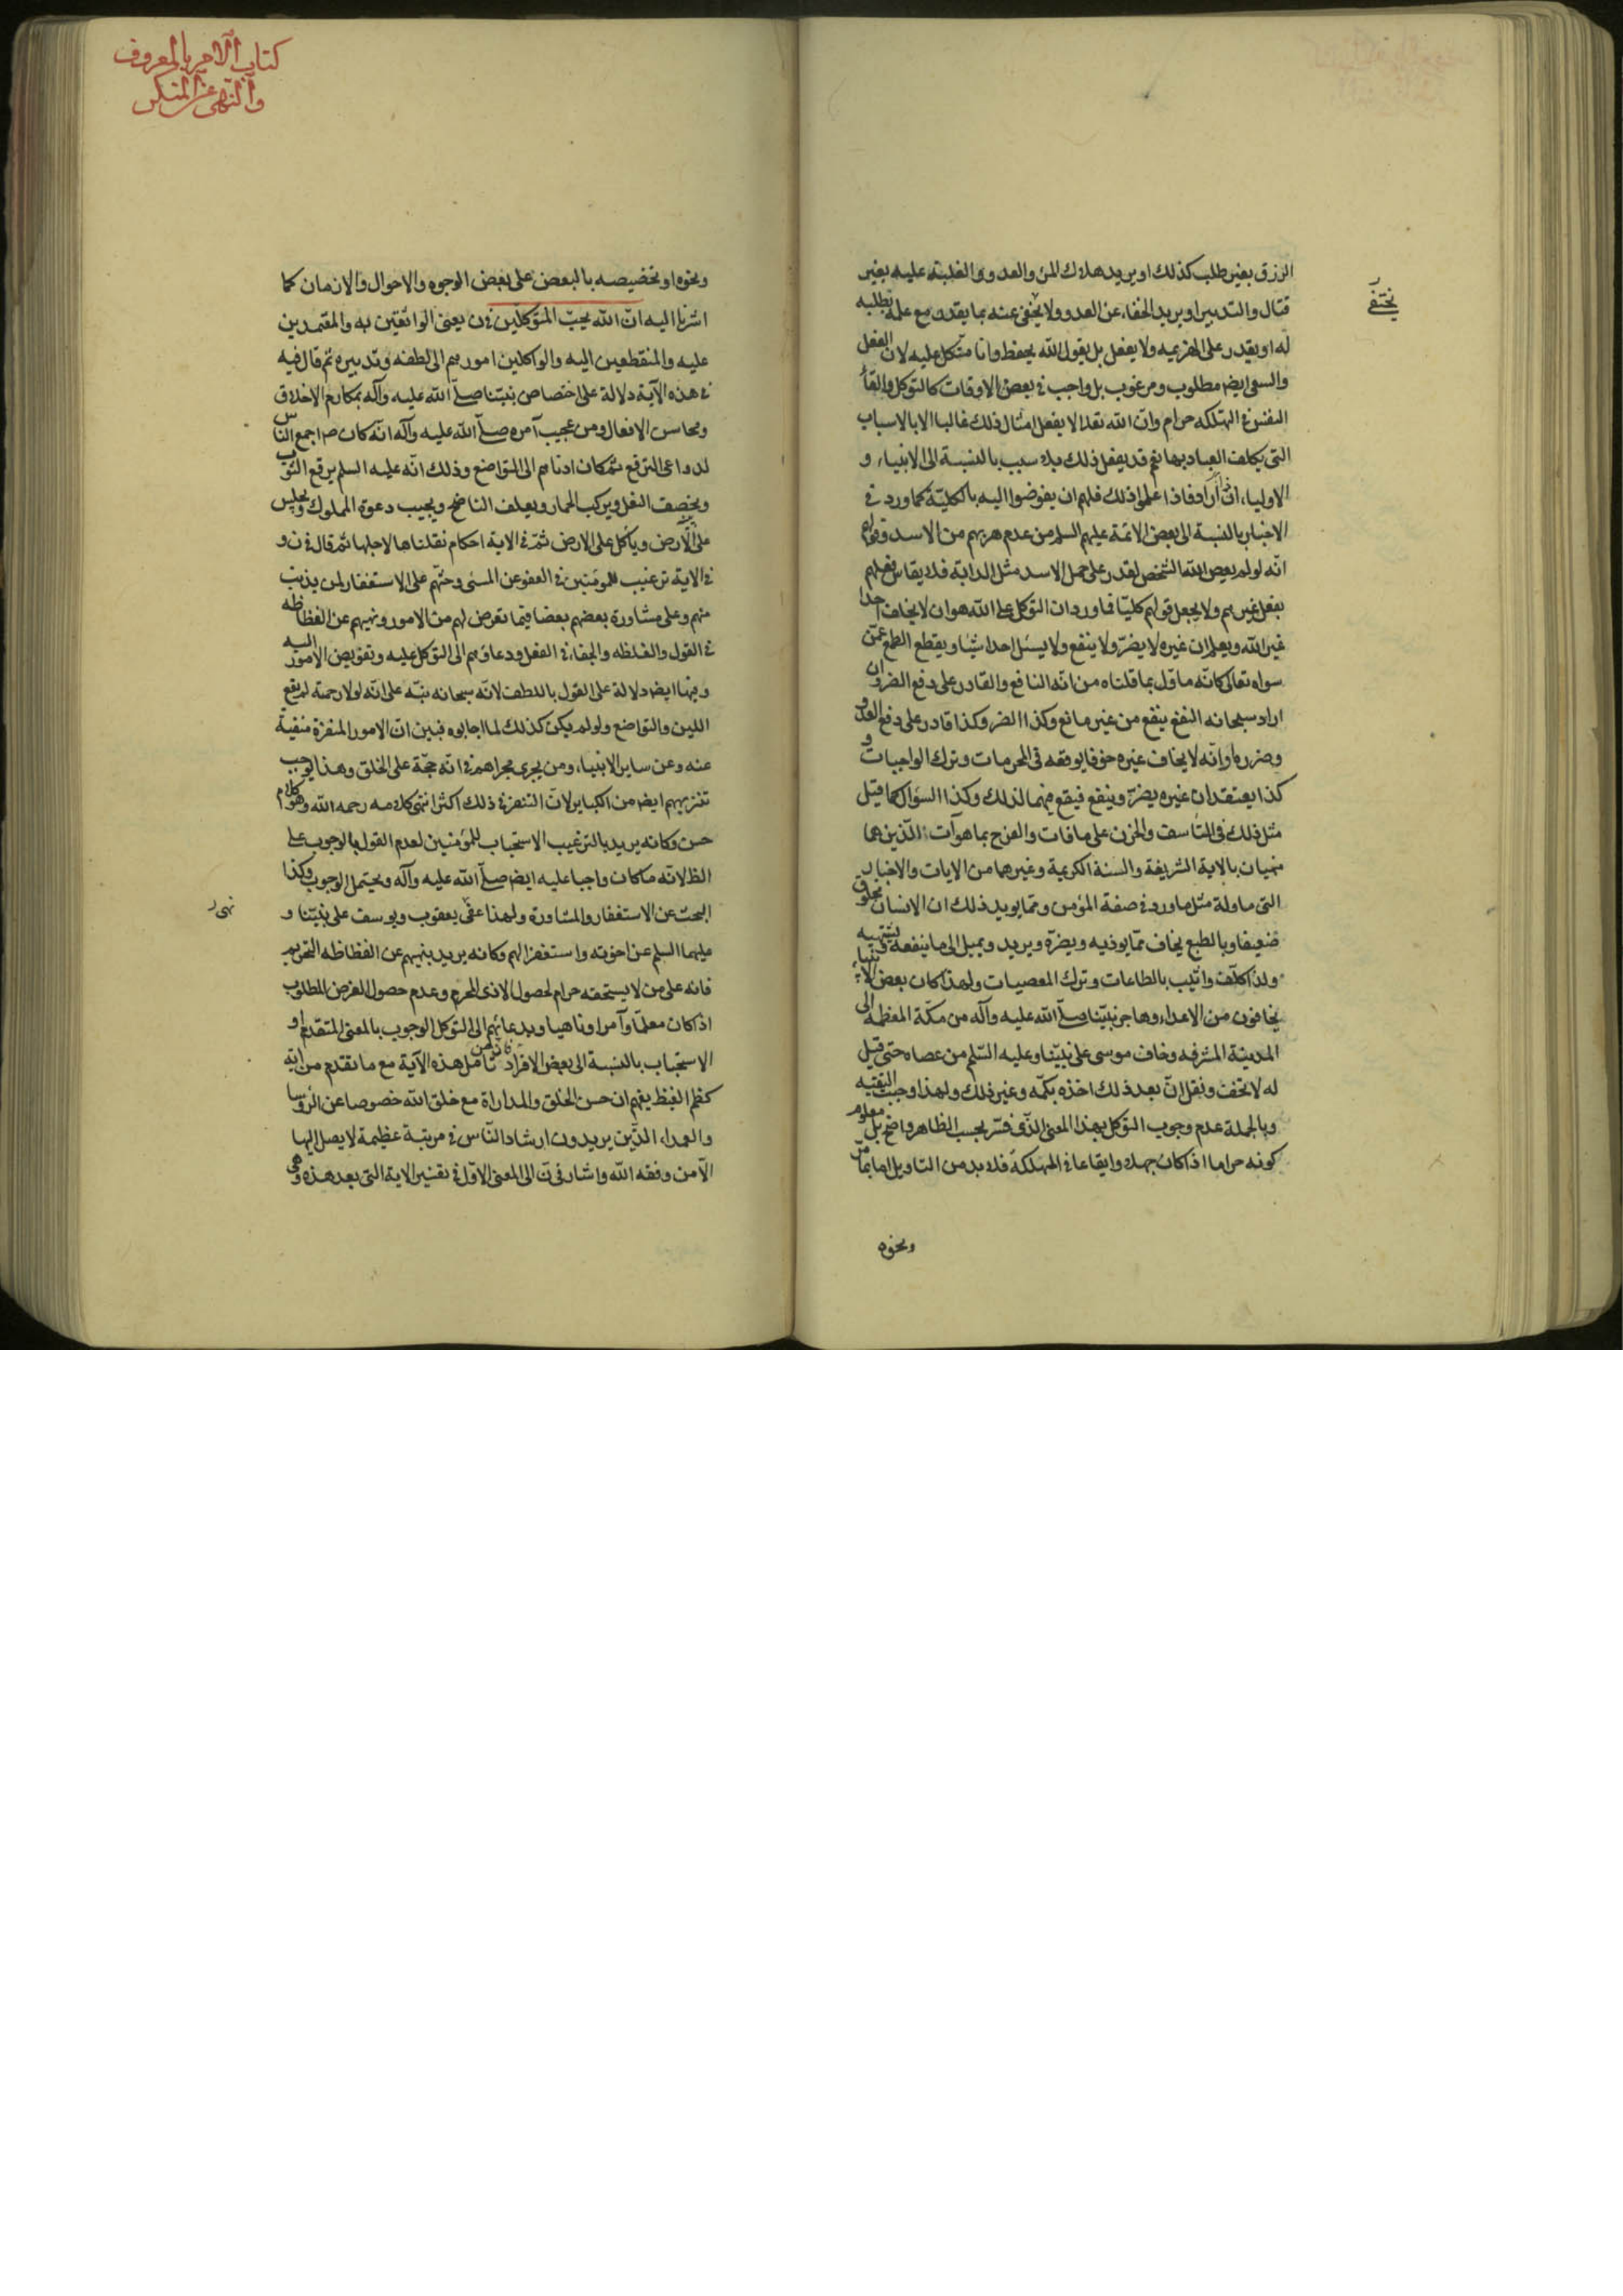 الرزق بغير طلب كذلك او يريد هلاك المن والعدو والغلبة عليه بغير
قتال والتدبير او يريد الخفاء عن العدو ولا يخفى عنه بما يقدر مع علمه بطلبه
يختفى
له او يقدر على الهزيمه ولا يفعل بل يقول الله يحفظ وانا متّكل عليه لان الفعل
والسعى ايض مطلوب ومرغوب بل واجب فى بعض الاوقات كالتوكل والقاء
النفس فى التهلكه حرام وانّ الله تعه لا يفعل امثال ذلك غالبا الا بالاسباب
التى يكلف العباد بها نعم قد يفعل ذلك بلا سبب بالنسبة الى الانبياء و
الاولياء ان اراد فاذا علموا ذلك فلهم ان يفوضوا اليه بالكليّة كما ورد فى
الاخبار بالنسبة الى بعض الائمة عليهم السلم من عدم هربهم من الاسد وقولهم
انّه لو لم يعص الله الشخص لقدر على حمل الاسد مثل الدابّة فلا يقاس فعلهم
بفعل غيرهم ولا يجعل قولهم كليّا فما ورد ان التوكل على الله هو ان لا يخاف احدا
غير الله ويعلم ان غيره لا يضرّ ولا ينفع ولا يسئل احدا شيئا ويقطع الطمع عمّن
سواه تعالى كانّه ماوّل بما قلناه من انّه النافع والقادر على دفع الضرر وان
اراد سبحانه النفع ينفع من غير مانع وكذا الضر وكذا قادر على دفع العدو
وضرره او انّه لا يخاف غيره خوفا يوقعه فى المحرمات وترك الواجبات و
كذا يعتقد ان غيره يضرّ وينفع فيقع فيهما لذلك وكذا السؤال كما قيل
مثل ذلك فى التأسف والحزن على ما فات والفرح بما هو آت الّذين هما
منهيان بالاية الشريفة والسنة الكريمة وغيرهما من الايات والاخبار
التى ماولة مثل ما ورد فى صفة المؤمن ومما يويد ذلك ان الانسان مخلوق
ضعيفا وبالطبع يخاف ممّا يوذيه ويضرّه ويريد ويميل الى ما ينفعه ويشتهيه
ولذا كلّف واثيب بالطاعات وترك المعصيات ولهذا كان بعض الانبياء
يخافون من الاعداء وهاجر نبيّنا صلّى الله عليه وآله من مكّة المعظمه الى
المدينة المشرفه وخاف موسى على نبيّنا وعليه السّلم من عصاه حتى قيل
له لا تخف ونقل انّ بعد ذلك اخذه بكمّه وغير ذلك ولهذا وجب التقيه
وبالجملة عدم وجوب التوكل بهذا المعنى الذى فسّر بحسب الظاهر واضح بل معلوم
كونه حراما اذا كان جهلا وايقاعا فى المهلكة فلا بد من التاويل اما بما مرّ
ونحوه
كتاب الامر بالمعروف
والنهى عن المنكر
ونحوه او تخصيصه بالبعض على بعض الوجوه والاحوال والازمان كما
اشرنا اليه انّ الله يحبّ المتوكّلين فى ن يعنى الواثقين به والمعتمدين
عليه والمنقطعين اليه والواكلين امورهم الى لطفه وتدبيره ثم قال فيه
فى هذه الآية دلالة على اختصاص نبيّنا صلّى الله عليه وآله بمكارم الاخلاق
ومحاسن الافعال ومن عجيب آمره صلّى الله عليه وآله انّه كان ص اجمع النّاس
لدواعى الترفع ثم كان ادناهم الى التواضع وذلك انّه عليه السلم يرقع الثوب
ويخصف النعل ويركب الحمار ويعلف الناضح ويجيب دعوة المملوك ويجلس
على الارض وياكل على الارض ثمّ فى الاية احكام نقلناها لاجلها ثم قال فى ن و
فى الاية ترغيب للمؤمنين فى العفو عن المسئى وحثهم على الاستغفار لمن يذنب
منهم وعلى مشاورة بعضهم بعضا فيما تعرض لهم من الامور ونهيهم عن الفظاظه
فى القول والغلظه والجفاء فى الفعل ودعاؤهم الى التوكل عليه وتفويض الامور اليه
وفيها ايض دلالة على القول باللطف لانّه سبحانه نبّه على انّه لولا رحمة لم يقع
اللين والتواضع ولو لم يكن كذلك لما اجابوه فبين انّ الامور المنفرة منفية
عنه وعن ساير الانبياء ومن يجرى مجراهم فى انّه حجّة على الخلق وهذا يوجب
تنزيههم ايض من الكباير لانّ التنفر فى ذلك اكثر انتهى كلامه رحمه الله وهو كلام
حسن وكانه يريد بالترغيب الاستحباب للمؤمنين لعدم القول بالوجوب على
الظ لانّه ما كان واجبا عليه ايض صلّى الله عليه وآله ويحتمل الوجوب وكذا
البحث عن الاستغفار والمشاورة ولهذا عفى يعقوب ويوسف على نبيّنا و
عليهما السلم عن اخوته واستغفر لهم وكانه يريد بنهيهم عن الفظاظه التحريم
فانه على من لا يستحقه حرام لحصول الاذى المحرم وعدم حصول الغرض المطلوب
اذا كان معلمّا وآمرا وناهيا وبدعائهم الى التوكل الوجوب بالمعنى المتقدم او
الاستحباب بالنسبة الى بعض الافراد تامل هذه الآية مع ما تقدم من اية
كظم الغيظ يفهم ان حسن الخلق والمداراة مع خلق الله خصوصا عن الرؤسا
والعلماء الذّين يريدون ارشاد النّاس فى مرتبة عظيمة لا يصل اليها
الّا من وفقه الله واشار فى ن الى المعنى الاوّل فى تفسير الاية التى بعد هذه وهى